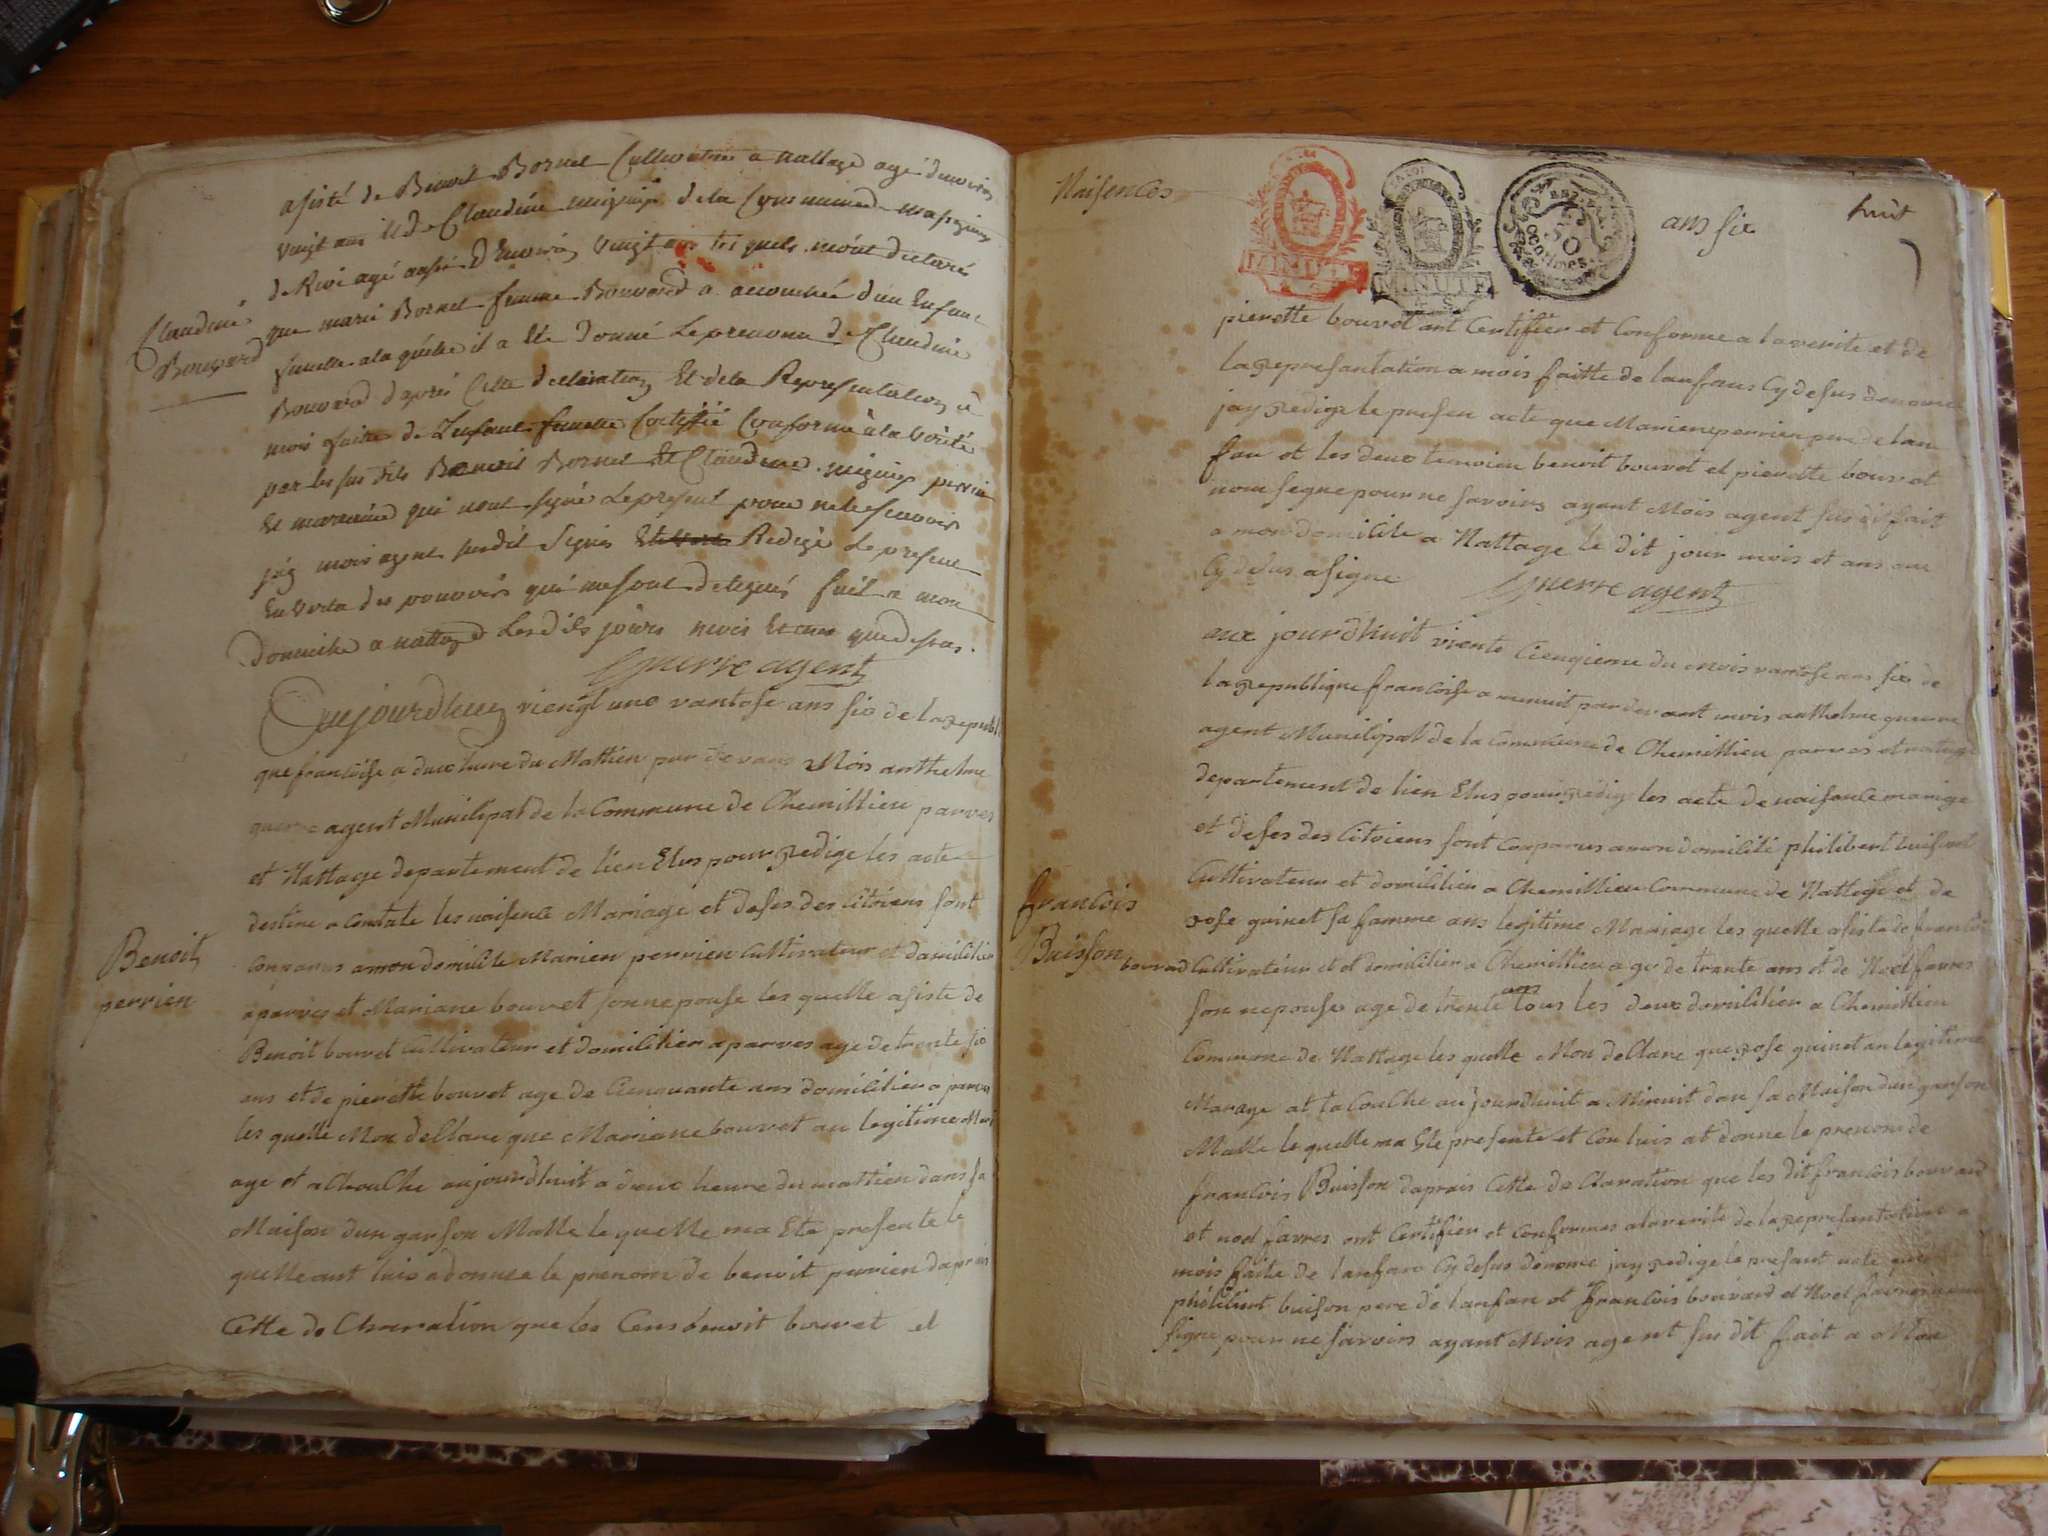 asisté de Benoit Bornet Cultivateur a nattage agé d'environ
vingt ans et de Claudine de la Commune de
de Rive agé aussi d'Environ vingt ans les quels m'ont declaré
que marie Bornet femme Bouvard a accouchée d'un Enfant
femelle a la quelle il a été donné le prenom de Claudine
Claudine
Bouvard
Bouvard d'apres cette declaration et de la Representation a
moi faite de L'enfant femelle Certifié Conforme a la Vérité
par les sus dits Benoit Bornet et Claudine
Et marraine qui n'ont signé le present pour ne le scavoir
moi agent susdit signé Redigé le present
En vertu des pouvoirs qui me sont delegués fait a mon
domicile a nattage Les dits jours mois Et an que dessus.
guerre agent
Aujourdhuy viengt une vantose ans six de la republi
que francoise a deux heure du Mattien par de vant Mois anthelme
guerre agent Municipal de la Commune de Chemillieu parves
et Nattage departement de lien Elus pour redige les acte
destine a Constate les naisence Mariage et deses des Citoiens sont
Benoit
perrien
Conparus a mon domicile Marien perrien Cultivateur et domicilier
a parves et Mariane bouvet son nepouse les quelle asiste de
Benoit bouvet Cultivateur et domicilier a parves age de trente six
ans et de pierette bouvet age de Cienquante ans domicilier a parves
les quelle Mon dellare que Mariane bouvet an legitime Mari
age et a Chouche aujourdhuit a deux heure du mattien dans sa
Maison dun garson Malle le quelle ma Ete presente le
quelle ant luis a donnee le prenom de benoit perrien daprais
Cette de Charation que les Cens benoit bouvet et
Naisences
MINUTE
MINUTE
50
Centimes
ans six
huit
7
pierette bouvet ont Certifier et Conforme a la verite et de
la represantation a mois faitte de lanfans Cy desus denome
jay redige le presen acte que Mariene perrien pere de lan
fan et les deux temoien benoit bouvet et pierette bouvet
nom segne pour ne savoirs ayant Mois agent sus dit fait
a mon domicile a Nattage le dit jour mois et ans que
Cy desus a signe guerre agent
aux jourdhuit viente Ciengieme du mois vantose ans six de
la republique francoise a menuit par devant mois anthelme guerre
agent Municipal de la Commune de Chemillieu parves et nattage
departement de lien Elus pour redige les acte de naisance mariage
et deses des Citoiens sont Conparus a mon domicile philibert buisson
Cultivateur et domicilier a Chemillieu Commune de Nattage et de
francois
Buisson
rose guinet sa famme ans legitime Mariage les quelle asiste de francois
bouvard Cultivateur et domicilier a Chemillieu age de trante ans et de Noel favres
son nepouse age de trente ans tous les deux domicilier a Chemillieu
Commune de Nattage les quelle Mon dellare que rose guinet an legitime
Marage at ta Couche au jourdhuit a Minuit dan sa Maison dun garson
Malle le quelle ma Ete presente et Con luis at donne le prenom de
francois Buisson daprais Cette de Claration que les dit francois bouvard
et noel favres ont Certifier et Conformes a la verite de la represantation a
mois faite de lanfan Cy desus denome jay redige le presant acte que
philibert buison pere de lanfan et francois bouvard et Noel favres nom
signe pour ne savoirs ayant Mois agent sus dit fait a Mon